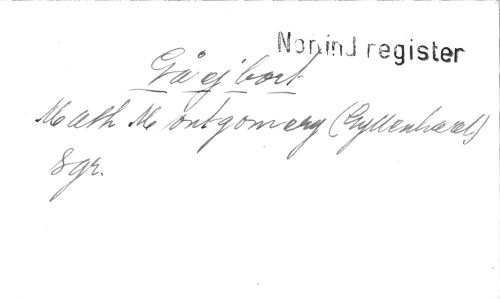 Nomind register
Gå ej bort
Math Montgomery (Gyllenhaal)
8 gr.